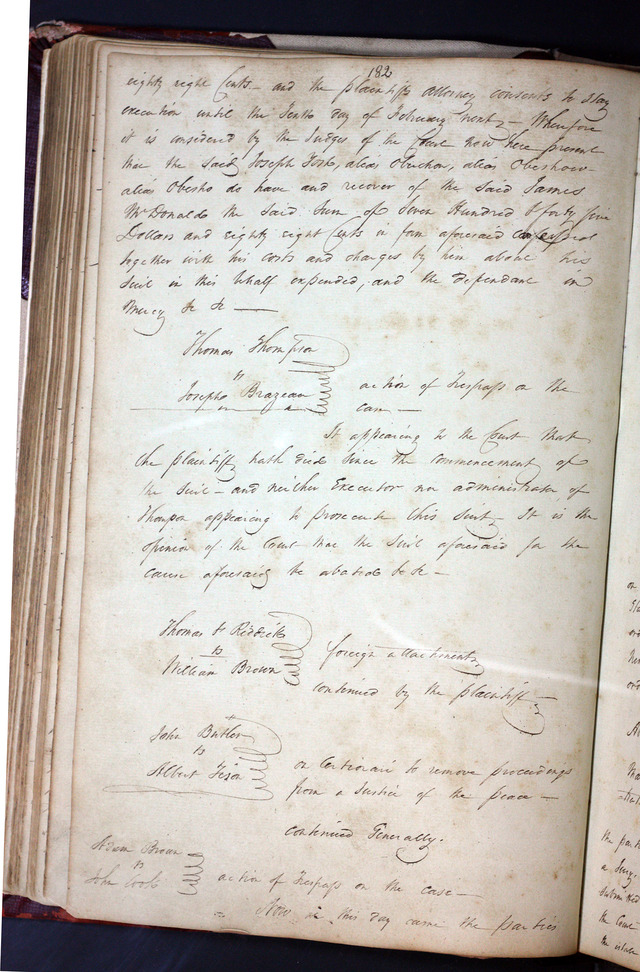 182
eighty eight Cents - and the plaintiffs attorney consents to stay
execution until the Tenth day of February next - Wherefore
it is considered by the Judges of the Court now here present
that the said Joseph alias alias
alias Obesho do have and recover of the said James
McDonald the said Sum of Seven Hundred & forty five
Dollars and eighty eight Cents in form aforesaid confessed
together with his costs and charges by him about his
Suit in this behalf expended, and the defendant in
Mercy &c &c —
Thomas Thompson
vs
Joseph Brazeau
action of Trespass on the
case —
It appearing to the Court that
the plaintiff hath died since the commencement of
the Suit - and neither Executor nor administrator of
Thompson appearing to prosecute this suit, It is the
opinion of the Court that the Suit aforesaid for the
cause aforesaid be abated &c &c —
Thomas F Riddick
vs
William Brown
foreign attachment
continued by the plaintiff —
John Butler
vs
Albert Tison
on Certiorari to remove proceedings
from a Justice of the peace —
continued Generally.
Adam Brown
vs
John Cook
action of Trespass on the case —
Now at this day came the parties